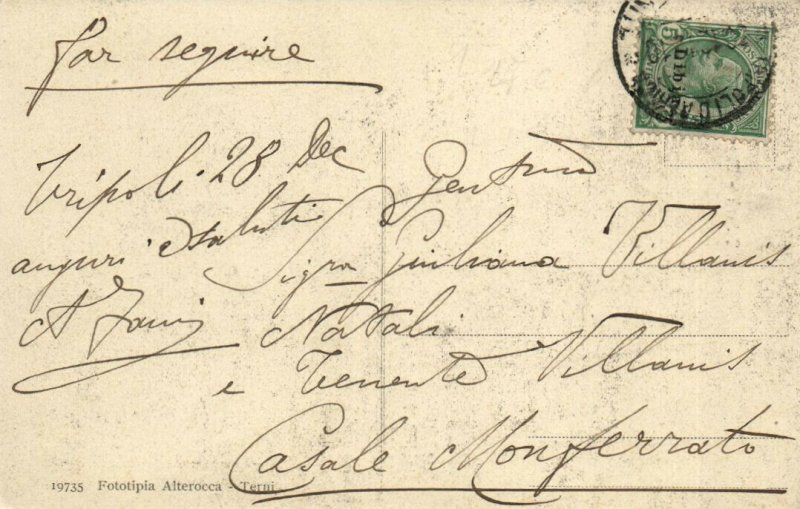 far seguire
Tripoli 28 Dec
auguri e saluti
A
Sig.ra Giuliana Villanis
Natali
e Tenente Villanis
Casale Monferrato
19735 Fototipia Alterocca - Terni
5
Dibi